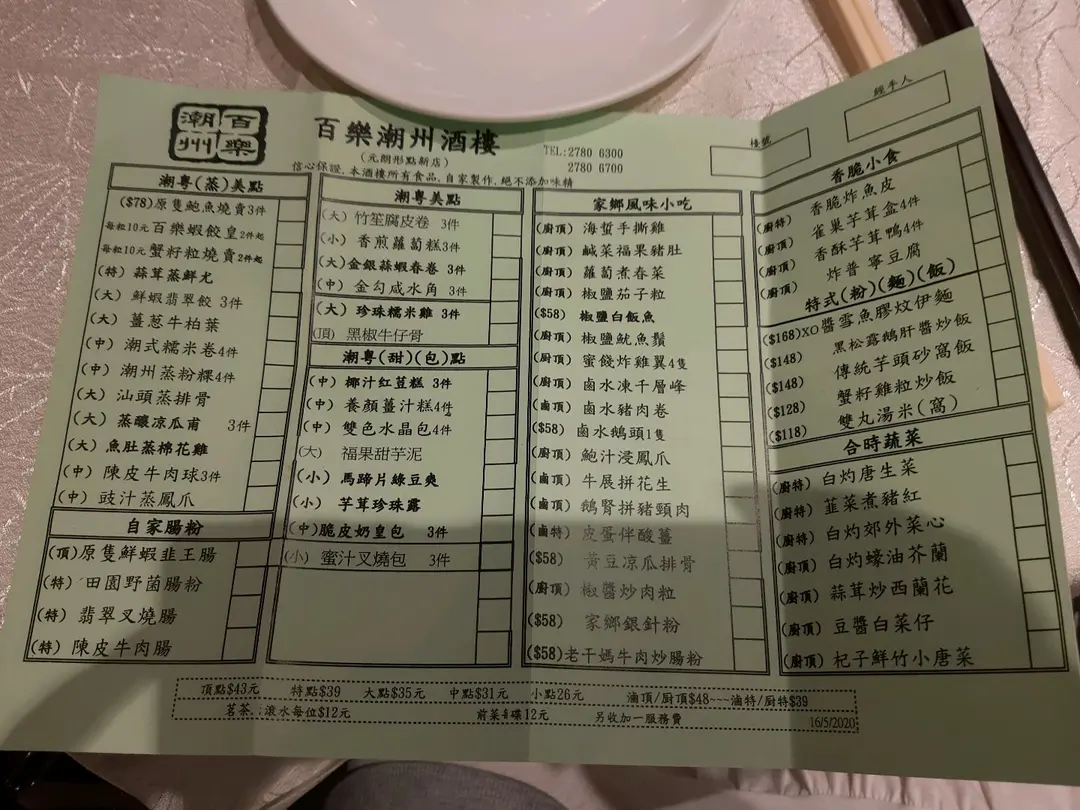 潮州
百樂
百樂潮州酒樓
(元朗形點新店)
信心保證,本酒樓所有食品,自家製作,絕不添加味精
TEL:2780 6300
2780 6700
檯號
經手人
潮粵(蒸)美點
($78)原隻鮑魚燒賣3件
每粒10元 百樂蝦餃皇2件起
每粒10元 蟹籽粒燒賣2件起
(特) 蒜茸蒸鮮尤
(大) 鮮蝦翡翠餃 3件
(大) 薑葱牛柏葉
(中) 潮式糯米卷4件
(中) 潮州蒸粉粿4件
(大) 汕頭蒸排骨
(大) 蒸釀凉瓜甫 3件
(大) 魚肚蒸棉花雞
(中) 陳皮牛肉球3件
(中) 豉汁蒸鳳爪
自家腸粉
(頂)原隻鮮蝦韭王腸
(特) 田園野菌腸粉
(特) 翡翠叉燒腸
(特) 陳皮牛肉腸
潮粵美點
(大) 竹笙腐皮卷 3件
(小) 香煎蘿蔔糕3件
(大)金銀蒜蝦春卷 3件
(中) 金勾咸水角 3件
(大) 珍珠糯米雞 3件
(頂) 黑椒牛仔骨
潮粵(甜)(包)點
(中) 椰汁紅荳糕 3件
(中) 養顏薑汁糕4件
(中) 雙色水晶包4件
(大) 福果甜芋泥
(小) 馬蹄片綠豆爽
(小) 芋茸珍珠露
(中)脆皮奶皇包 3件
(小) 蜜汁叉燒包 3件
家鄉風味小吃
(廚頂) 海蜇手撕雞
(廚頂) 鹹菜福果豬肚
(廚頂) 蘿蔔煮春菜
(廚頂) 椒鹽茄子粒
($58) 椒鹽白飯魚
(廚頂) 椒鹽魷魚鬚
(廚頂) 蜜餞炸雞翼4隻
(廚頂) 鹵水凍千層峰
(鹵頂) 鹵水豬肉卷
($58) 鹵水鵝頭1隻
(廚頂) 鮑汁浸鳳爪
(鹵頂) 牛展拼花生
(鹵頂) 鵝腎拼豬頸肉
(鹵特) 皮蛋伴酸薑
($58) 黃豆凉瓜排骨
(廚頂) 椒醬炒肉粒
($58) 家鄉銀針粉
($58)老干媽牛肉炒腸粉
香脆小食
(廚特) 香脆炸魚皮
(廚頂) 雀巢芋茸盒4件
(廚頂) 香酥芋茸鴨4件
(廚頂) 炸普寧豆腐
特式(粉)(麵)(飯)
($168)XO醬雪魚膠炆伊麵
($148) 黑松露鵝肝醬炒飯
($148) 傳統芋頭砂窩飯
($128) 蟹籽雞粒炒飯
($118) 雙丸湯米(窩)
合時蔬菜
(廚特) 白灼唐生菜
(廚特) 韮菜煮豬紅
(廚特) 白灼郊外菜心
(廚頂) 白灼蠔油芥蘭
(廚頂) 蒜茸炒西蘭花
(廚頂) 豆醬白菜仔
(廚頂) 杞子鮮竹小唐菜
頂點$43元 特點$39 大點$35元 中點$31元 小點26元 滷頂/厨頂$48---滷特/厨特$39
茗茶:滾水每位$12元 前菜每碟12元 另收加一服務費 16/5/2020